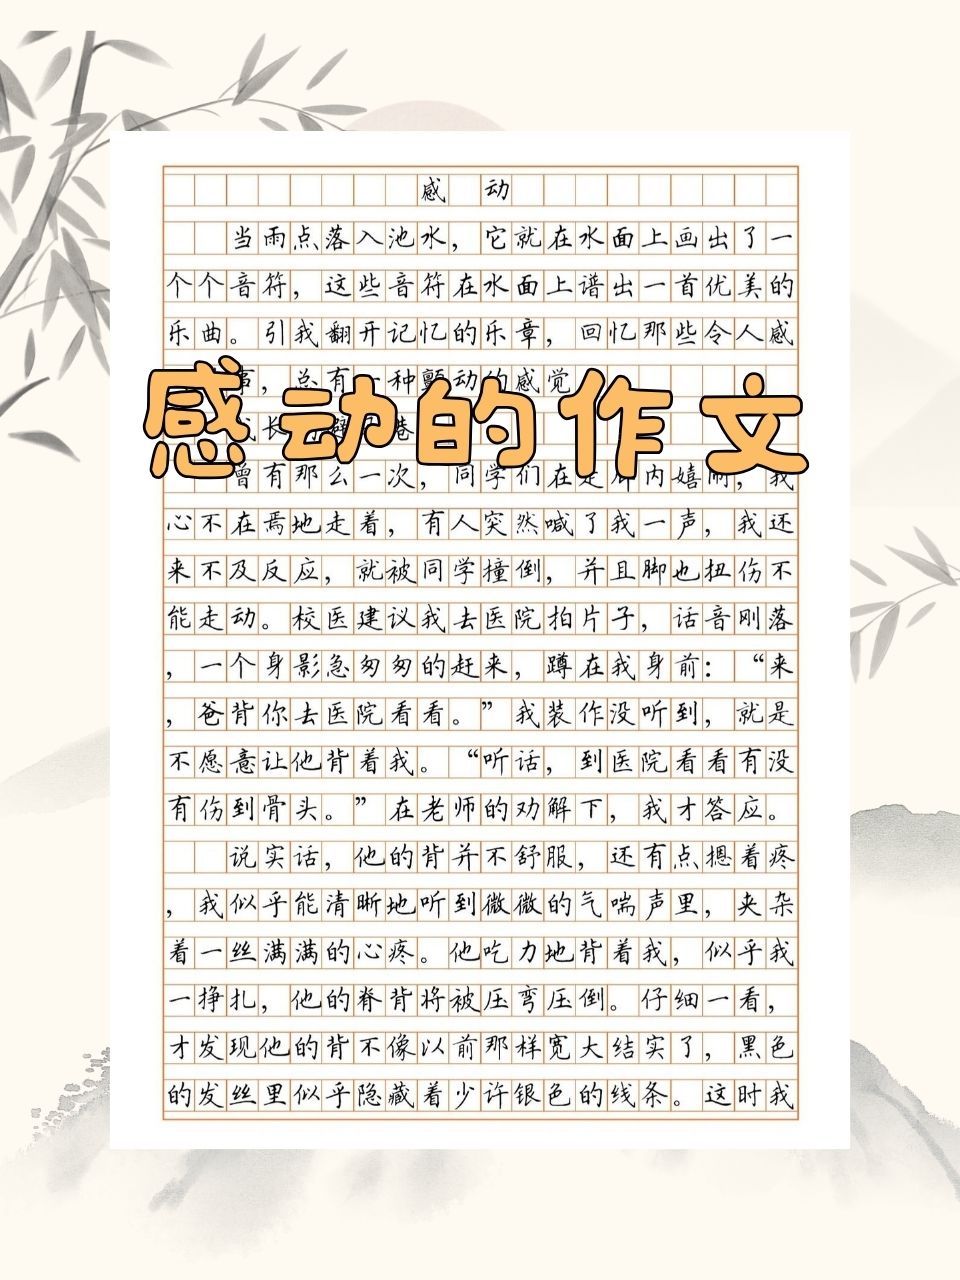 感 动
当雨点落入池水，它就在水面上画出了一
个个音符，这些音符在水面上谱出一首优美的
乐曲。引我翻开记忆的乐章，回忆那些令人感
事，总有一种颤动的感觉
感动的作文
长
巷
曾有那么一次，同学们在走廊内嬉闹，我
心不在焉地走着，有人突然喊了我一声，我还
来不及反应，就被同学撞倒，并且脚也扭伤不
能走动。校医建议我去医院拍片子，话音刚落
，一个身影急匆匆的赶来，蹲在我身前：“来
，爸背你去医院看看。”我装作没听到，就是
不愿意让他背着我。“听话，到医院看看有没
有伤到骨头。”在老师的劝解下，我才答应。
说实话，他的背并不舒服，还有点摁着疼
，我似乎能清晰地听到微微的气喘声里，夹杂
着一丝满满的心疼。他吃力地背着我，似乎我
一挣扎，他的脊背将被压弯压倒。仔细一看，
才发现他的背不像以前那样宽大结实了，黑色
的发丝里似乎隐藏着少许银色的线条。这时我